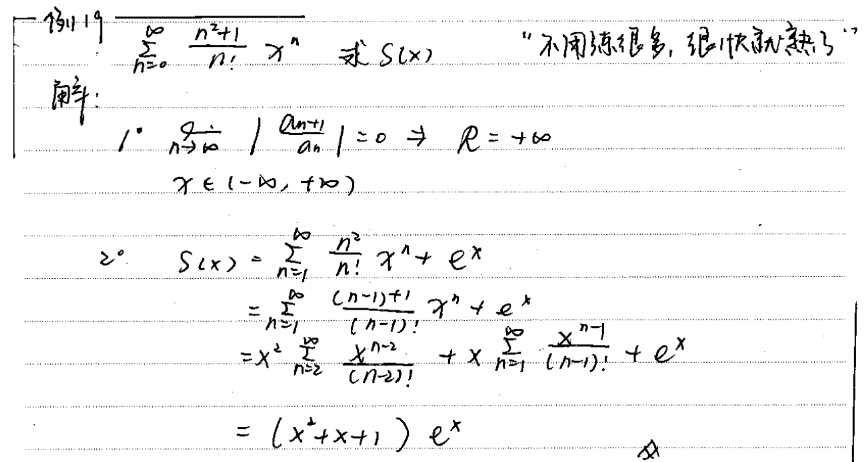 例19 $\sum_{n=0}^{\infty} \frac{n^2+1}{n!} x^n$ 求 S(x) "不用练很多, 很快就熟了"
解:
1° $\lim_{n\to\infty} \left|\frac{a_{n+1}}{a_n}\right| = 0 \Rightarrow R = +\infty$
$x \in (-\infty, +\infty)$
2° $S(x) = \sum_{n=1}^{\infty} \frac{n^2}{n!} x^n + e^x$
$= \sum_{n=1}^{\infty} \frac{(n-1)+1}{(n-1)!} x^n + e^x$
$= x^2 \sum_{n=2}^{\infty} \frac{x^{n-2}}{(n-2)!} + x \sum_{n=1}^{\infty} \frac{x^{n-1}}{(n-1)!} + e^x$
$= (x^2+x+1) e^x$